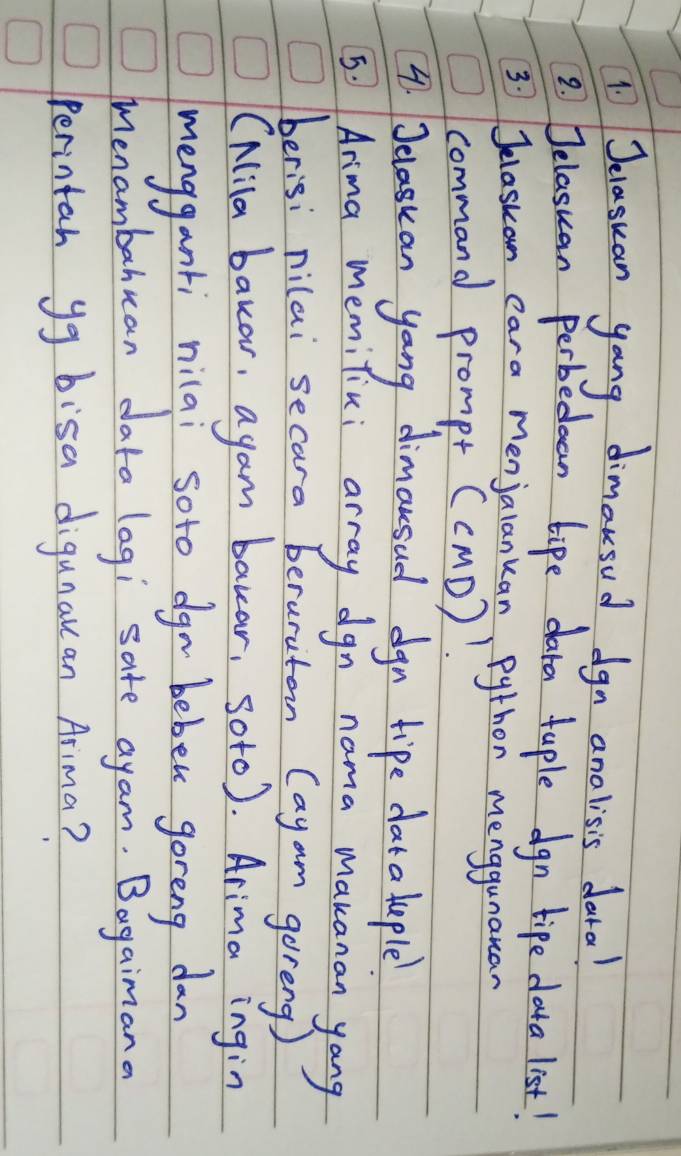 1. Jelaskan yang dimaksud dgn analisis data!
2. Jelaskan perbedaan tipe data tuple dgn tipe data list!
3. Jelaskan cara menjalankan python menggunakan
command prompt (CMD)!
4. Jelaskan yang dimaksud dgn tipe data tuple!
5. Arima memiliki array dgn nama makanan yang
berisi nilai secara berurutan (ayam goreng)
(Nila bakar, ayam bakar, soto). Arima ingin
mengganti nilai soto dgn bebek goreng dan
menambahkan data lagi sate ayam. Bagaimana
perintah yg bisa digunakan Arima?